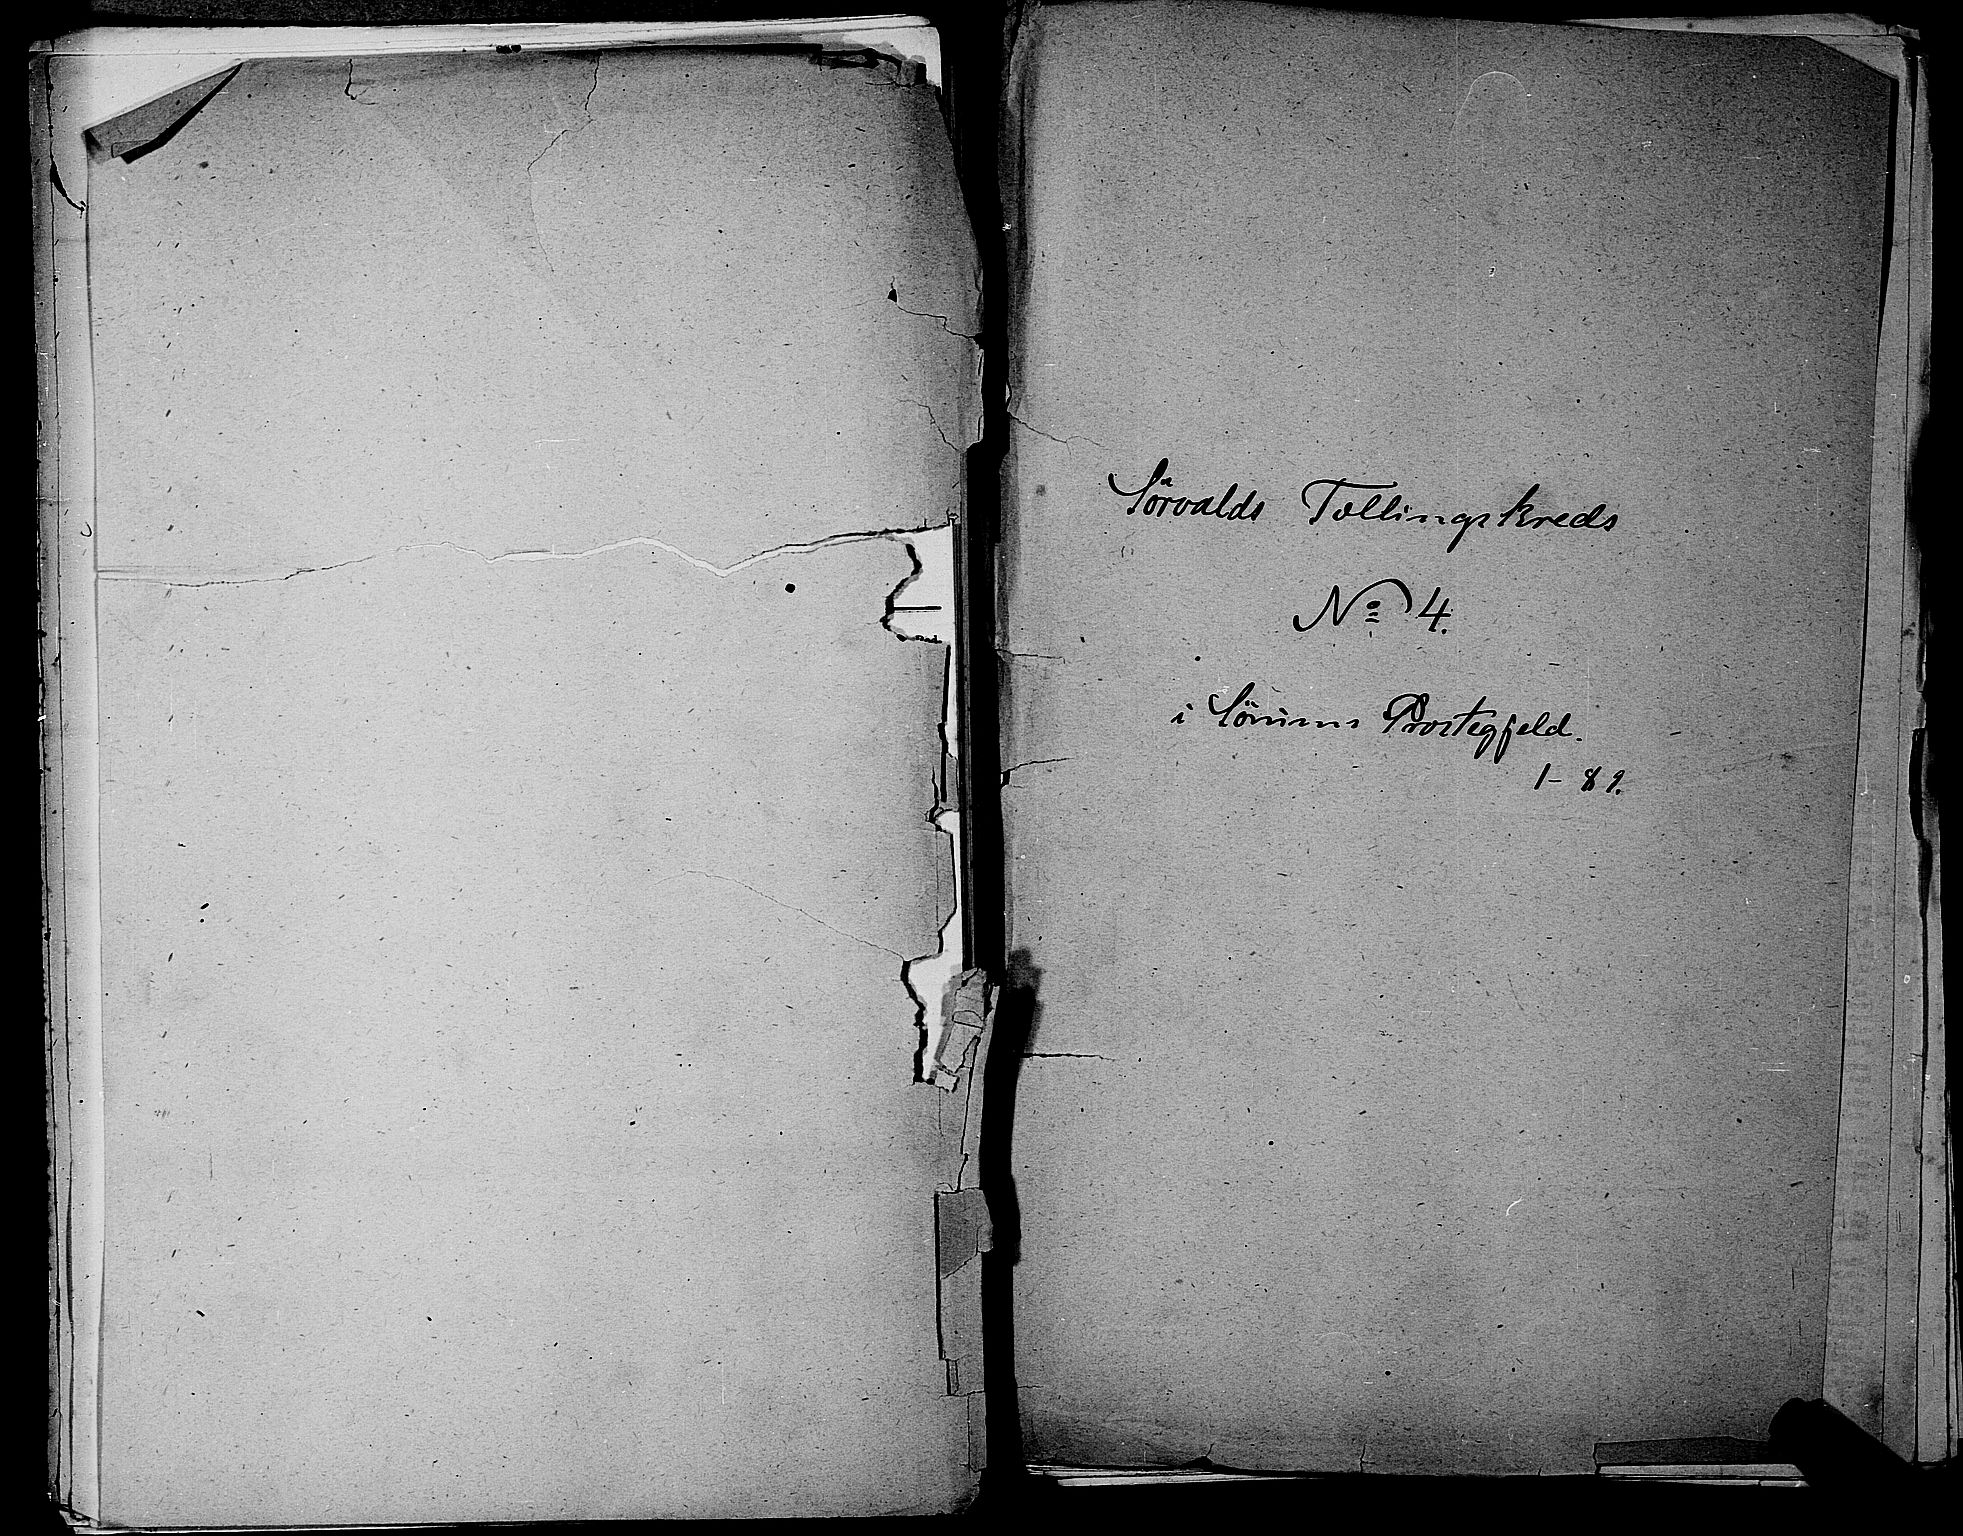 Sörvalds Tællingskreds
No 4.
i Sörums Prestegjeld.
1-89.